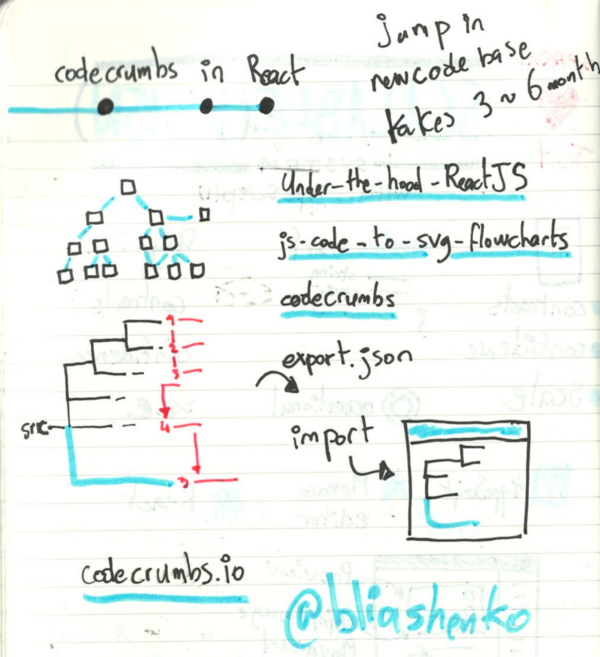 codecrumbs in React
jump in
new code base
takes 3 ~ 6 month
Under-the-hood-ReactJS
js-code-to-svg-flowcharts
codecrumbs
1
2
3
export.json
src
4
5
import
codecrumbs.io
@bliashenko